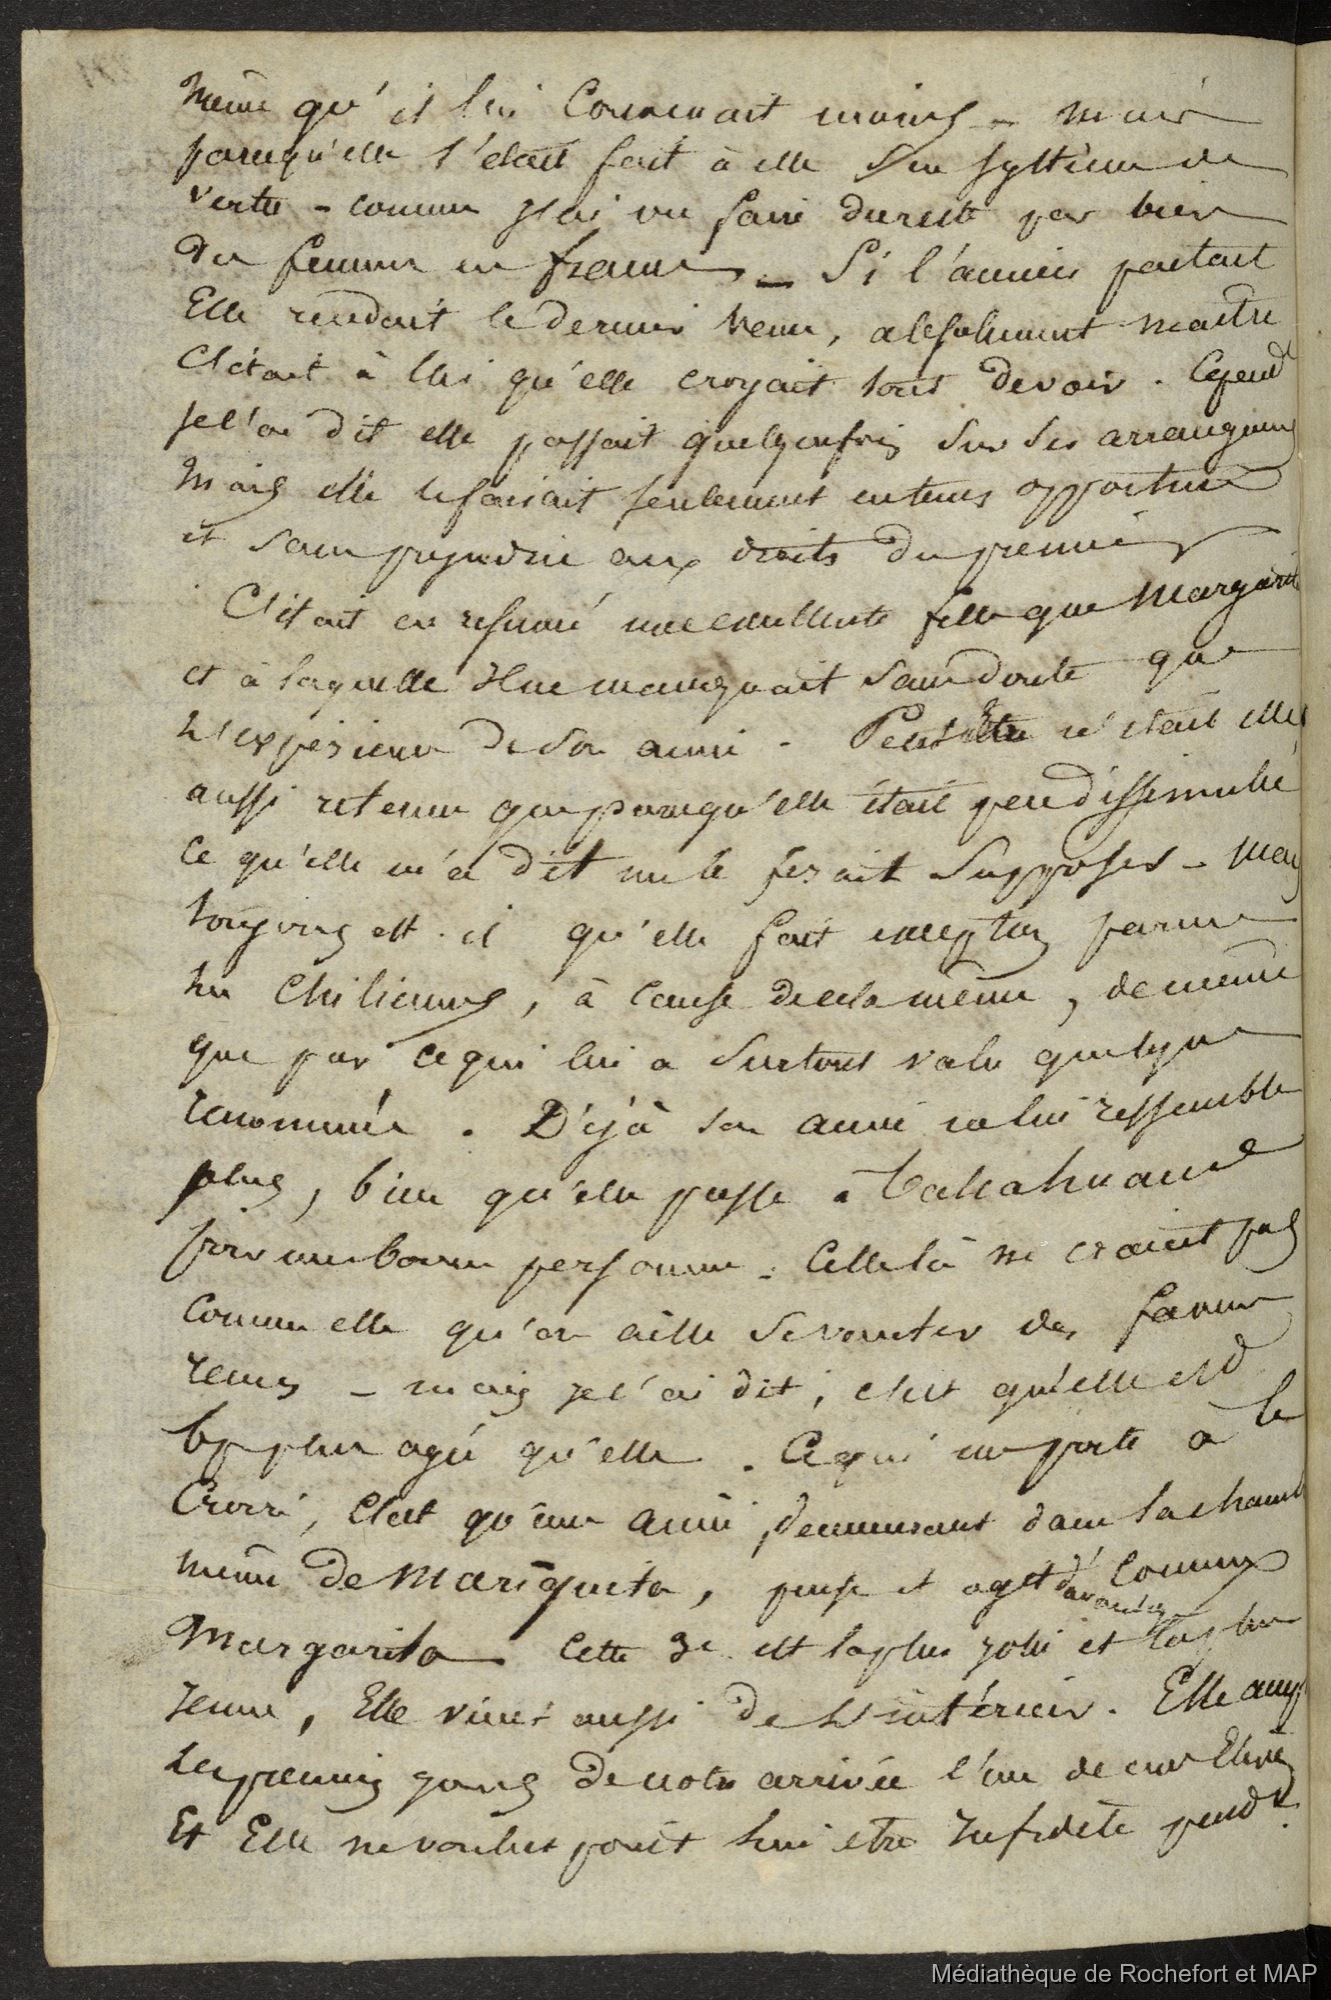 même qu'il lui convenait moins - mais
parcequ'elle s'était fait à elle son système de
vertu - comme j'ai vu faire dureste par bien
des femmes en france - Si l'ancien partait
Elle rendait le dernier venu, absolument maitre
C'était à lui qu'elle croyait tout devoir. Cepend<sup>t</sup>
je l'ai dit elle passait quelquefois sur ses arrangemens
Mais elle le faisait seulement entems opportuns
et sans prejudice aux droits du premier
C'était en résumé une excellente fille que Margarita
et à laquelle il ne manquait sans doute que
L'expérience de son amie. Peut être n'était elle
aussi retenue que parcequ'elle était peu dissimulée
Ce qu'elle m'a dit me le ferait supposer - mais
toujours est-il qu'elle fait exception parmi
les Chiliennes, à cause de cela même, de même
que par ce qui lui a surtout valu quelque
renommée. Déjà son amie ne lui ressemble
plus, bien qu'elle passe à Talcahuano
pour une bonne personne. Celle là ne craint pas
comme elle qu'on aille se vanter des faveurs
reçues - mais je l'ai dit, c'est qu'elle est
bp plus agée qu'elle. Ce qui me porte à le
Croire, c'est qu'une amie, demeurant dans la chambre
même de Mariquita, pense et agit d'avantage comme
Margarita. Cette 3e est la plus jolie et la plus
jeune, Elle vient aussi de L'intérieur. Elle aima
les premiers jours de notre arrivée l'un de nos Elèves
Et Elle ne voulut point lui etre Infidèle pend<sup>t</sup>
Médiathèque de Rochefort et MAP